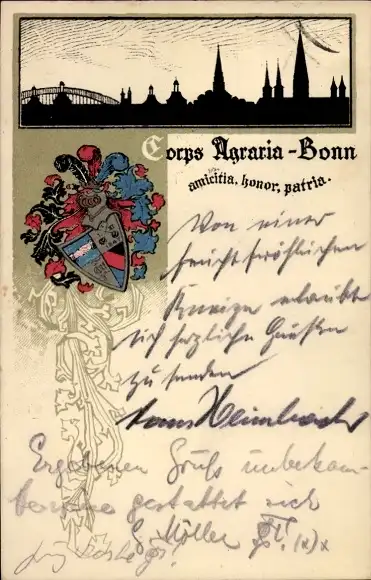 Corps Agraria-Bonn
amicitia, honor, patria.
Von einer
feuchtfröhlichen
Kneipe erlaubt
sich herzliche Grüße
zu senden
Hans Heimbach
Ergebenen Gruß unbekan-
gestattet sich
G. Möller